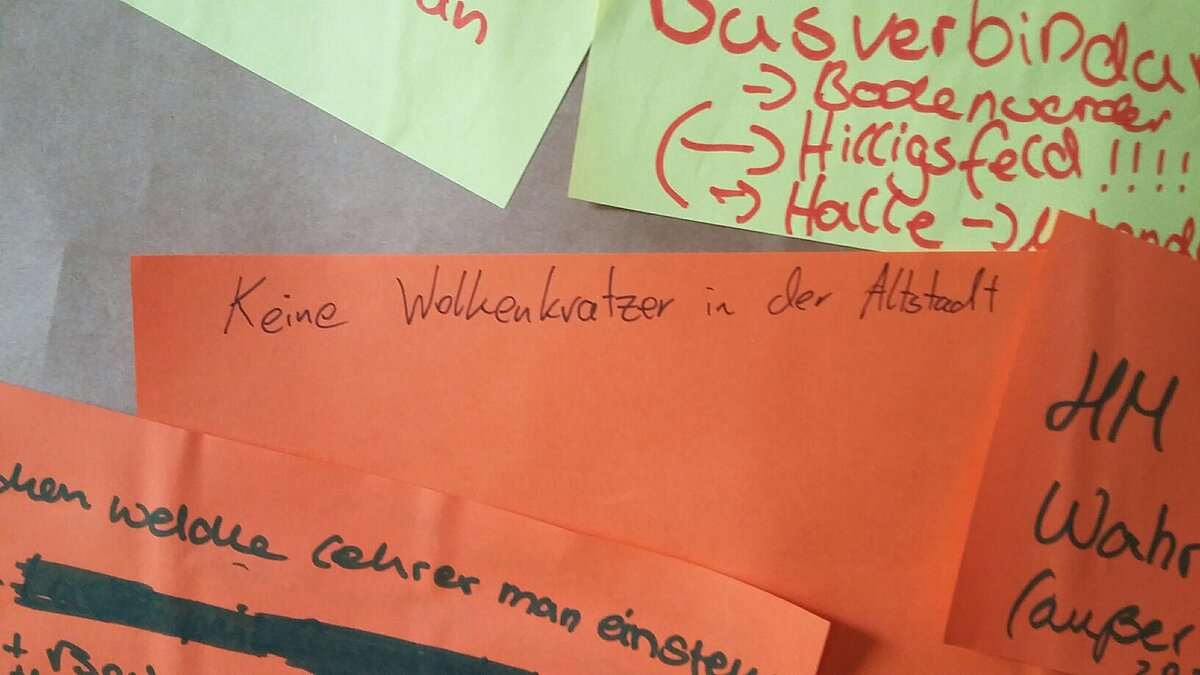 Busverbindun
-> Bodenwerder
(-> Hilligsfeld !!!!
-> Halle ->
Keine Wolkenkratzer in der Altstadt
HM
Wahr
(außer
welche Lehrer man einstel